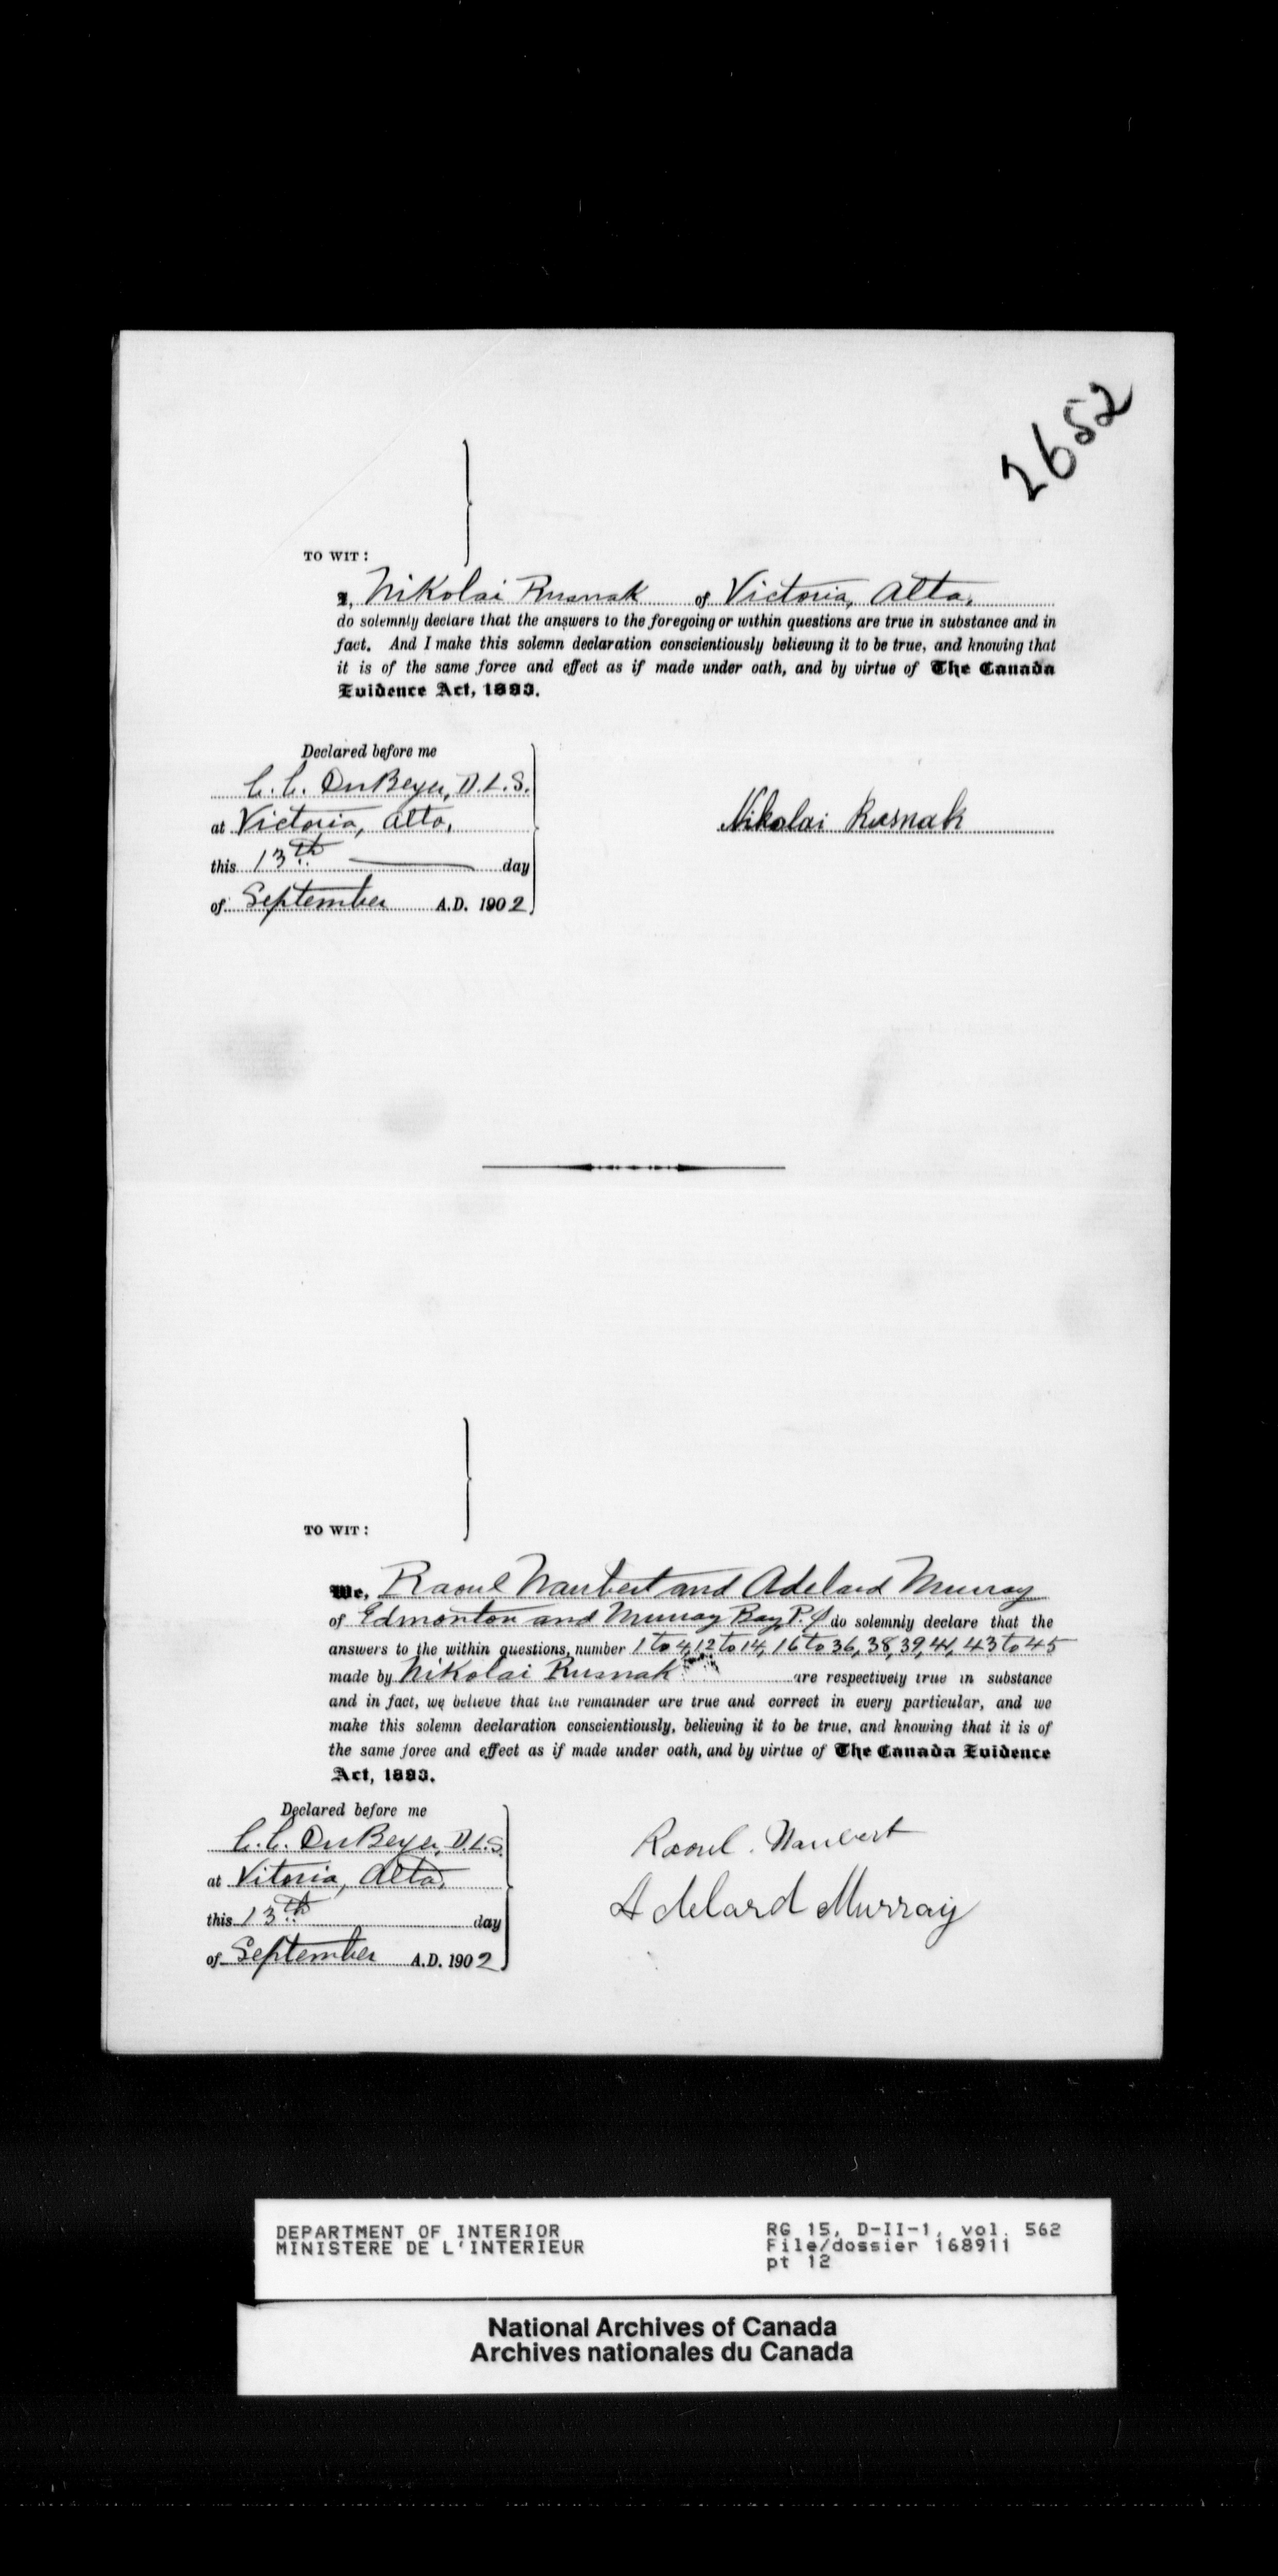 2652
TO WIT:
I, Nikolai Rusnak of Victoria, Alta,
do solemnly declare that the answers to the foregoing or within questions are true in substance and in
fact. And I make this solemn declaration conscientiously believing it to be true, and knowing that
it is of the same force and effect as if made under oath, and by virtue of The Canada
Evidence Act, 1893.
Declared before me
C. C. DuBeyer, D.L.S.
at Victoria, Alta,
this 13th day
of September A.D. 1902
Nikolai Rusnak
TO WIT:
We, Raoul Naubert and Adelard Murray
of Edmonton and Murray Bay P. Q do solemnly declare that the
answers to the within questions, number 1 to 4, 12 to 14, 16 to 36, 38, 39, 41, 43 to 45
made by Nikolai Rusnak are respectively true in substance
and in fact, we believe that the remainder are true and correct in every particular, and we
make this solemn declaration conscientiously, believing it to be true, and knowing that it is of
the same force and effect as if made under oath, and by virtue of The Canada Evidence
Act, 1893.
Declared before me
C. C. DuBeyer, D.L.S.
at Vitoria, Alta,
this 13th day
of September A.D. 1902
Raoul. Naubert
Adelard Murray
DEPARTMENT OF INTERIOR
MINISTERE DE L'INTERIEUR
RG 15, D-II-1, vol. 562
File/dossier 168911
pt 12
National Archives of Canada
Archives nationales du Canada